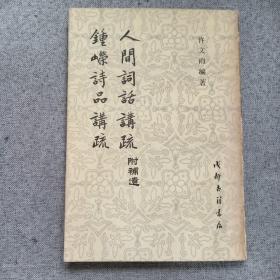 许文雨编著
人間詞話講疏 附補遺
鍾嶸詩品講疏
成都古籍書店